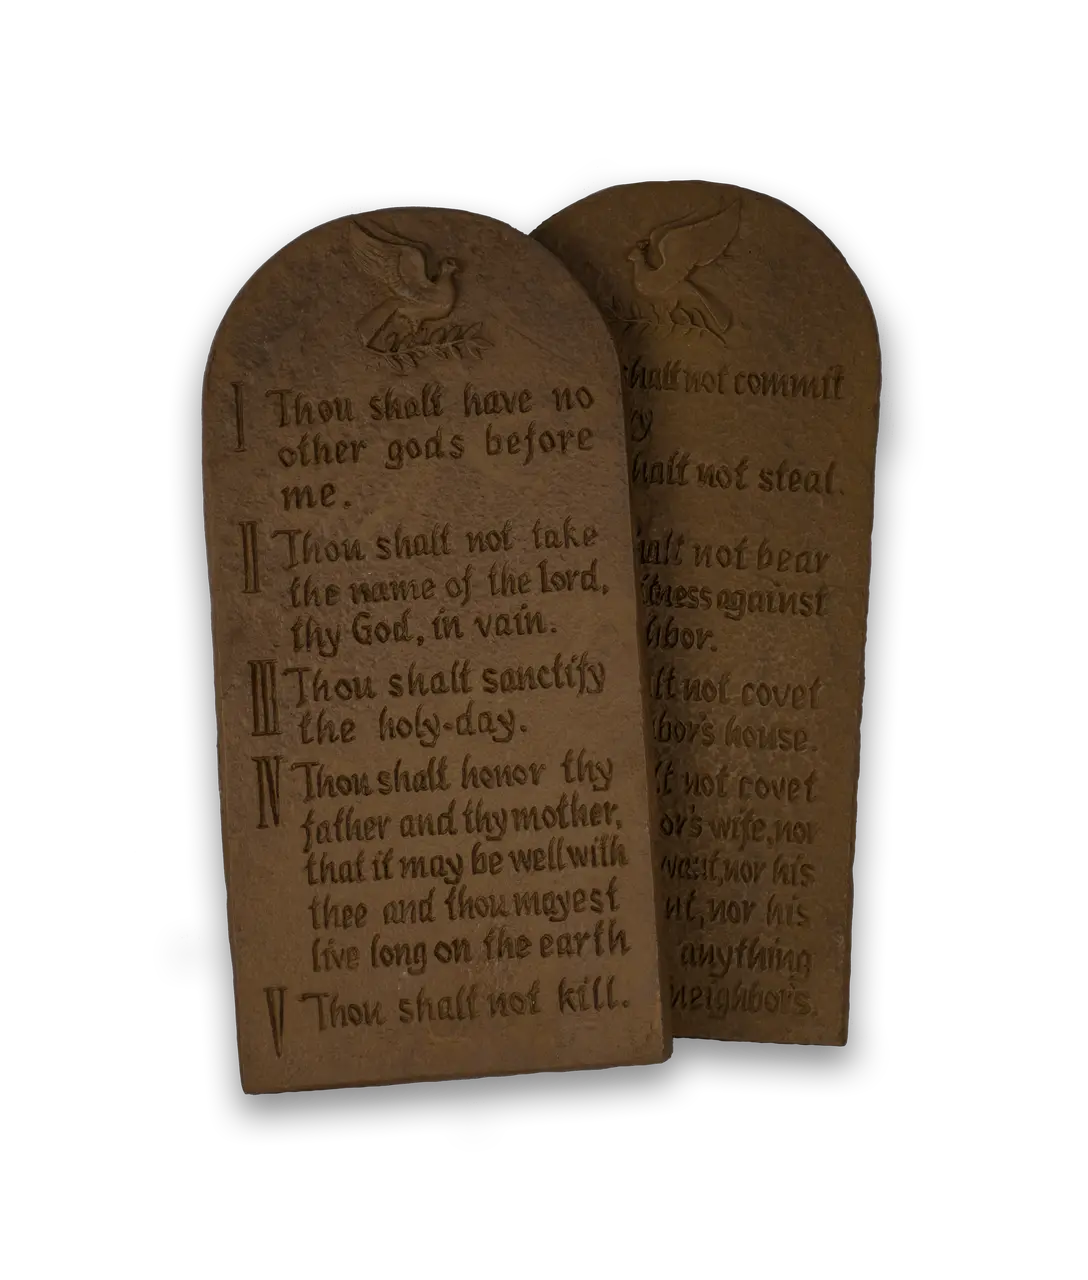 I Thou shalt have no
other gods before
me.
II Thou shalt not take
the name of the Lord,
thy God, in vain.
III Thou shalt sanctify
the holy-day.
IV Thou shalt honor thy
father and thy mother,
that it may be well with
thee and thou mayest
live long on the earth
V Thou shalt not kill.
shalt not commit
ry
shalt not steal.
halt not bear
itness against
hbor.
lt not covet
bor's house.
lt not covet
or's wife, nor
nor his
nt, nor his
anything
neighbor's.